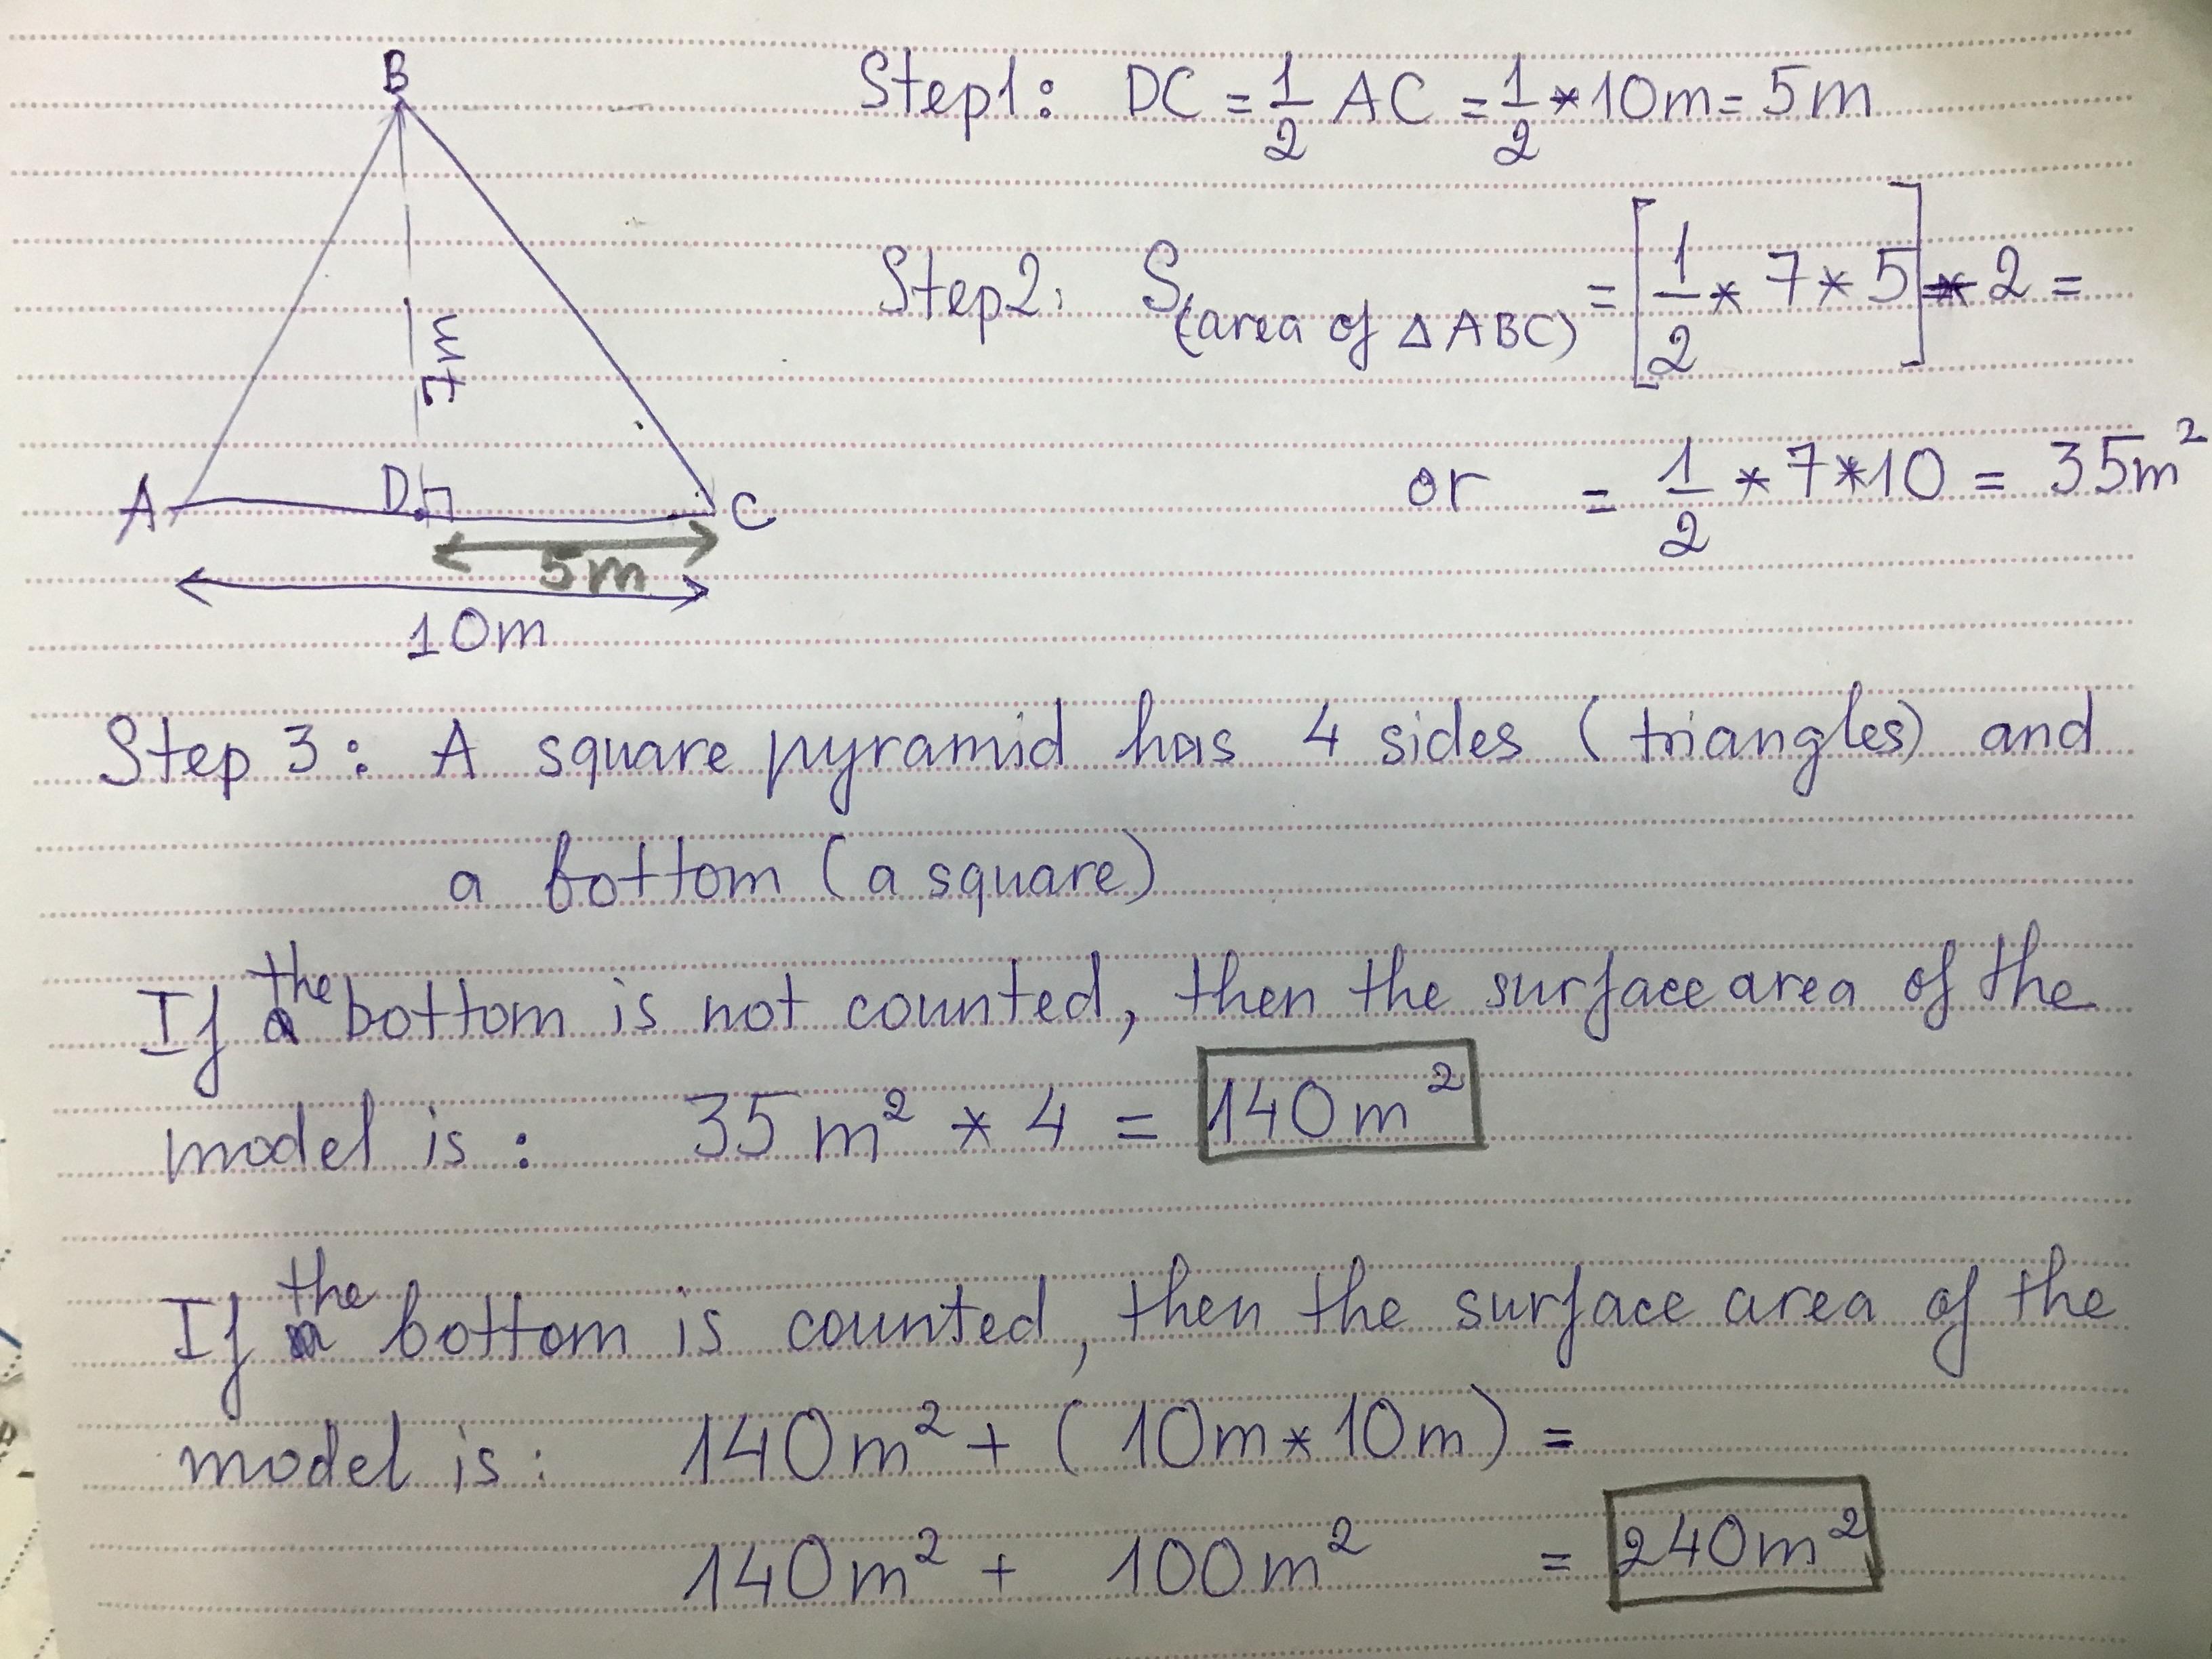 B
Step1: DC = 1/2 AC = 1/2 * 10m = 5m
Step2: S(area of △ABC) = [1/2 * 7 * 5] * 2 =
7m
or = 1/2 * 7 * 10 = 35m²
A D C
5m
10m
Step 3: A square pyramid has 4 sides (triangles) and
a bottom (a square)
If the bottom is not counted, then the surface area of the
model is: 35 m² * 4 = 140m²
If the bottom is counted, then the surface area of the
model is: 140m² + (10m * 10m) =
140m² + 100m² = 240m²